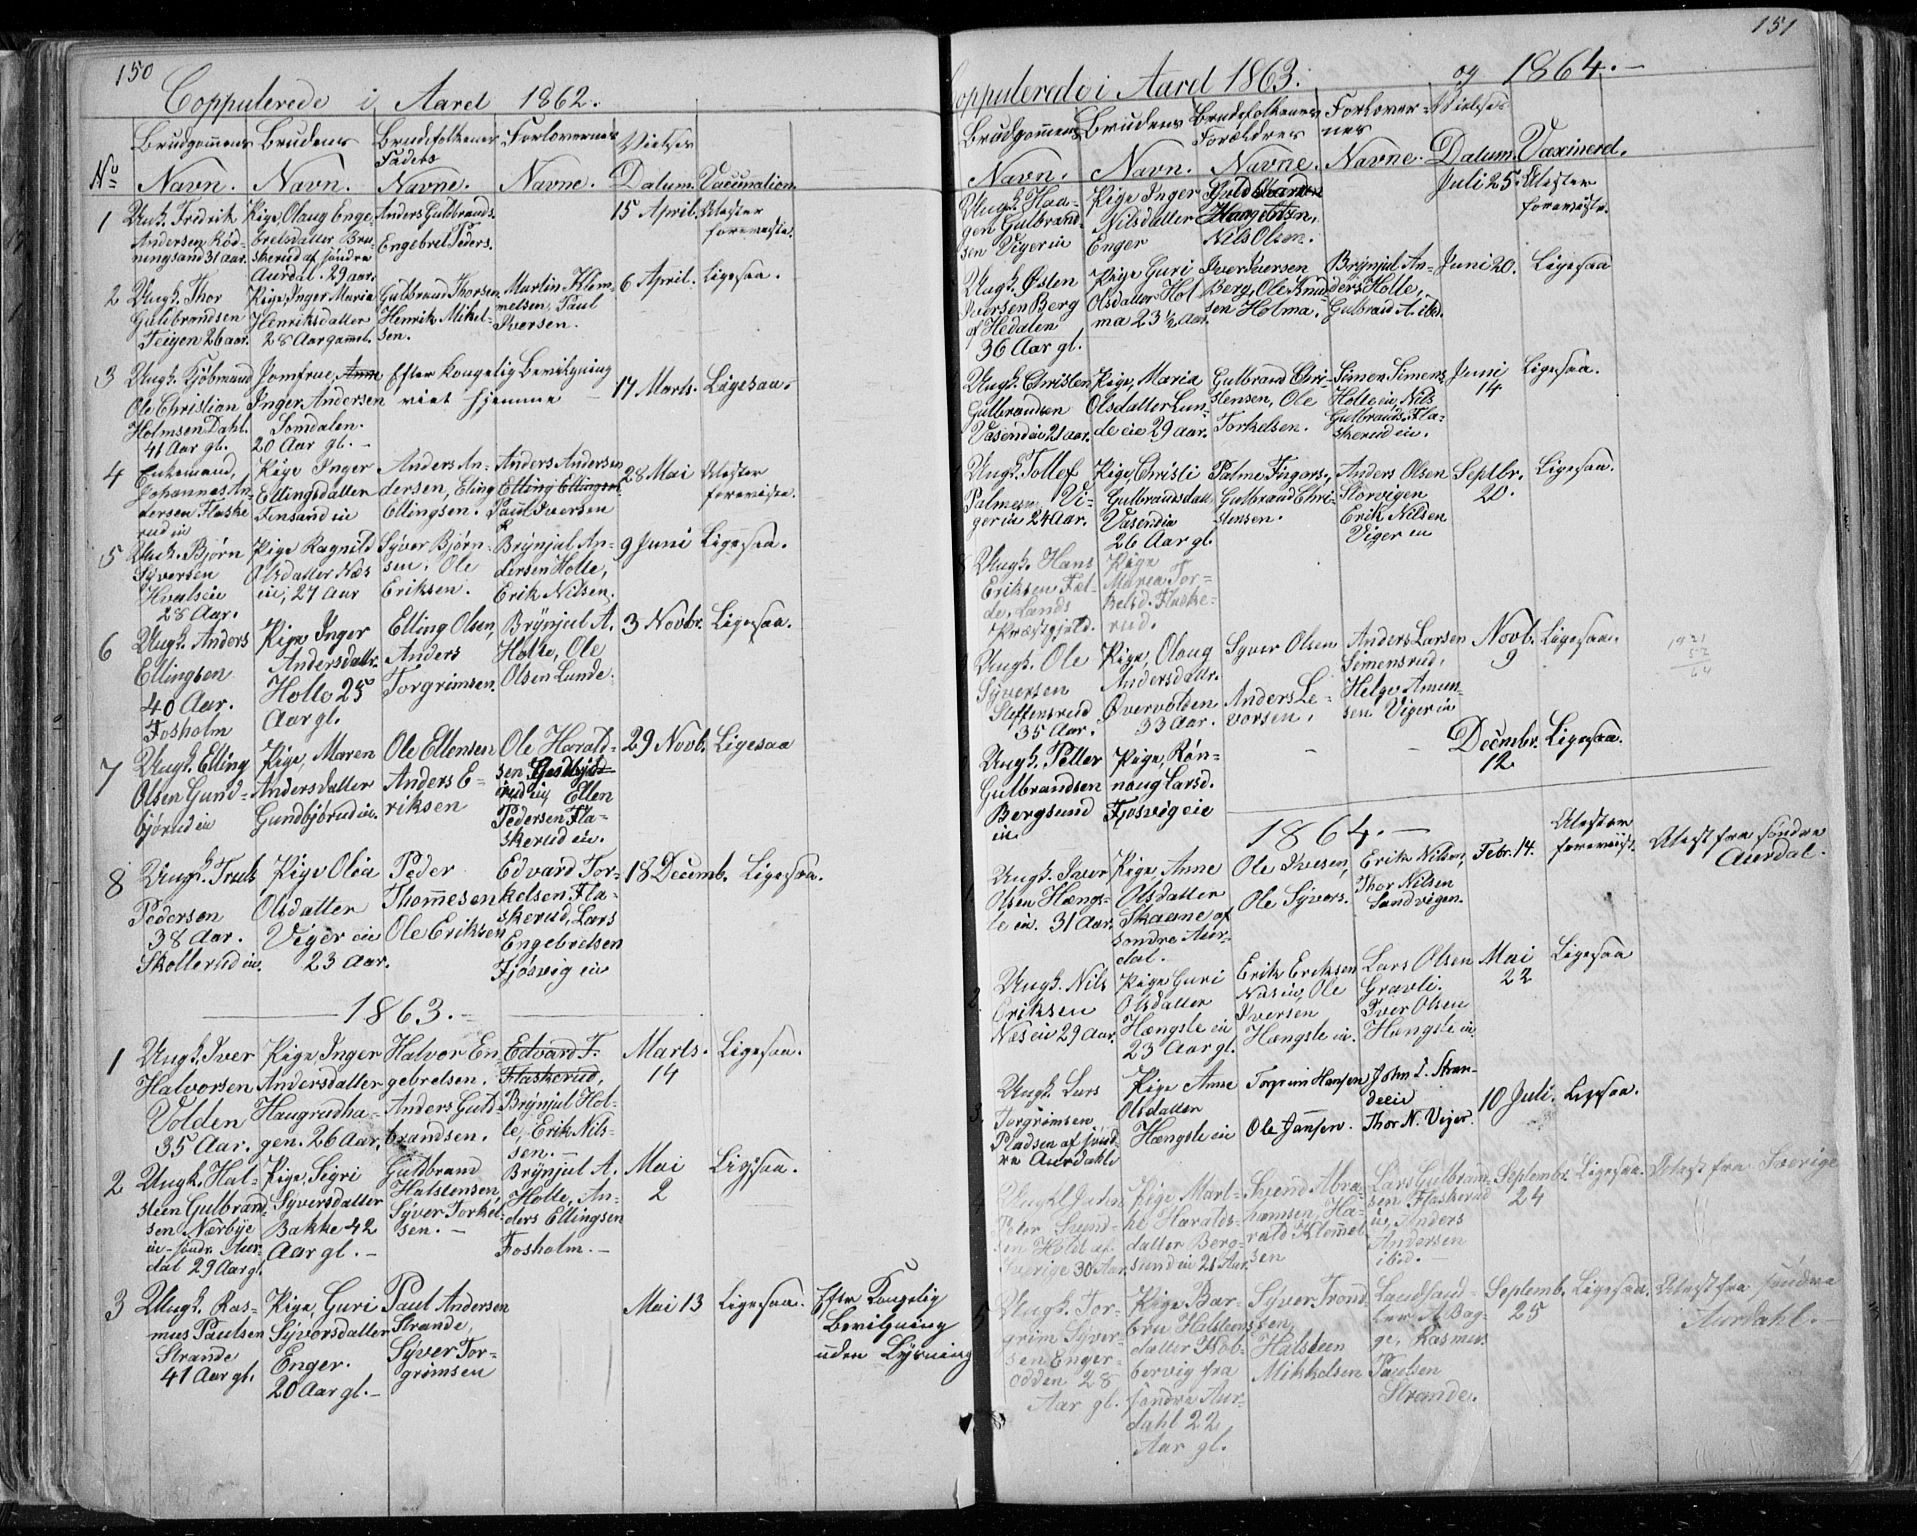 150
Coppulerede i Aaret 1862.
No
Brudgommens Navn.
Brudens Navn.
Brudefolkenes Fadets Navne.
Forlovernes Navne.
Vielses Datum.
Vaccination.
1
Ungk. Fredrik
Andersen Rød-
ningsand 31 aar.
Pige, Olaug Enge-
bretsdatter Bru-
skerud af søndre
Aurdal. 29 aar.
Anders Gulbrands.
Engebret Peders.
15 April.
Atester
foreviste.
2
Ungk. Thor
Gulbrandsen
Teigen 26 aar.
Pige, Inger Maria
Henriksdatter
28 Aar gamel.
Gulbrand Thorsen
Henrik Mikel-
sen.
Martin Klem-
melsen, Paul
Iversen.
6 April.
Ligesaa.
3
Ungk. Kjøbmand
Ole Christian
Holmsen Dahl.
41 Aar gl.
Jomfrue, Anne
Inger Andersen
Tomdalen.
20 Aar gl. -
Efter Kongelig Bevilgning
viet hjemme -
17 Marts.
Ligesaa.
4
Enkemand,
Johannes An-
dersen Flaske
rud ie
Pige Inger
Ellingsdatter
Tensand eie
Anders An-
dersen, Eling
Ellingsen.
Anders Andersen
Elling Ellingsen
Paul Iversen
28 Mai
Atester
foreviste.
5
Ungk. Bjørn
Syversen
Hvalseie
28 Aar.
Pige Ragnild
Olsdatter Næs
eie, 27 aar
Syver Bjørn-
sen. Ole
Eriksen.
Brynjul An-
dersen Holte,
Erik Nilsen.
9 Juni
Ligesaa.
6
Ungk. Anders
Ellingsen
40 Aar.
Fosholm
Pige Inger
Andersdattr.
Holte 25
Aar gl.
Elling Olsen,
Anders
Torgrimsen.
Brynjul A.
Holte, Ole
Olsen Lunde.
3 Novbr.
Ligesaa.
7
Ungk. Elling
Olsen Gund-
bjørud eie
Pige, Maren
Andersdatter
Gundbjørud eie.
Ole Ellensen
Anders E-
riksen
Ole Harald-
sen
rud eie, Ellen
Pedersen Fla-
skerud eie.
29 Novb.
Ligesaa
8
Ungk. Truls
Pedersen
38 Aar.
Skollerud eie.
Pige Olea
Olsdatter
Viger eie
23 Aar.
Peder
Thommesen
Ole Eriksen
Edvard Tor-
kelsen Fla-
skerud, Lars
Engebretsen
Fjøsvig eie
18 Decemb.
Ligesaa.
1863.
1
Ungk. Iver
Halvorsen
Volden
35 Aar.
Pige Inger
Andersdatter
Haugrudha-
gen. 26 Aar.
Halvor En-
gebretsen.
Anders Guld-
brandsen.
Edvard T.
Flaskerud,
Brynjul Hol-
te, Erik Nils-
sen. -
Marts.
14
Ligesaa.
2
Ungk. Hal-
steen Gulbrand-
sen Nærbye
eie - søndr. Aur-
dal 29 Aar gl.
Pige, Sigri
Syversdatter
Bakke 42
Aar gl. -
Guldbrand
Halstensen,
Syver Torkel-
sen. -
Brynjul A.
Holte, An-
ders Ellingsen
Fosholm. -
Mai
2
Ligesaa.
3
Ungk. Ras-
mus Paulsen
Strande
41 Aar gl.
Pige, Guri
Syversdatter
Enger.
20 Aar gl. -
Paul Andersen
Strande,
Syver Tor-
grimsen
Mai 13
Ligesaa.
Efter Kongelig
Bevilgning
uden Lysning
151
Coppulerede i Aaret 1863. og 1864. -
Brudgommens Navn.
Brudens Navn.
Brudefolkenes Forældres Navne.
Forlover-
nes Navne.
Vielses Datum.
Vaxinerd.
Ungk. Haa-
gen Gulbrand-
sen Viger eie
Pige Inger
Nilsdatter
Enger
Nils Olsen.
Juli 25.
Atester
foreviste.
Ungk. Østen
Iversen Berg
af Hedalen
36 Aar gl.
Pige Guri
Olsdatter Hol
ma 23 ½ Aar.
Iver Iversen
Berg, Ole Knu-
sen Holma.
Brynjul An-
ders Holte,
Gulbrand A. ibd.
Juni 20.
Ligesaa
Ungk. Christen
Gulbrandsen
Vasend eie 21 aar.
Pige, Maria
Olsdatter Lun-
de eie 29 aar.
Gulbrand Chri-
stensen, Ole
Torkelsen.
Simen Simens.
Holte eie, Nils
Gulbrands. Fla-
skerud eie.
Juni
14
Ligesaa.
Ungk. Tollef
Palmesen Vi-
ger eie 24 Aar.
Pige, Christi
Gulbrandsdatt.
Vasendie
26 Aar gl.
Palme Fingars.,
Gulbrand Chri-
stensen.
Anders Olsen
Storvigen
Erik Nilsen
Viger eie
Septbr.
20.
Ligesaa.
Ungk. Hans
Eriksen Fæl-
de, Lands
Præstgjeld.
Pige
Maria Tor-
kelsd. Flaske-
rud.
Ungk. Ole
Syversen
Steffensrud
35 Aar.
Pige, Olaug
Andersdattr.
Øvervolden
33 Aar.
Syver Olsen
Anders Le-
vorsen.
Anders Larsen
Simensrud,
Helge Amun-
sen Viger eie
Novb.
9
Ligesaa.
Ungk. Petter
Gulbrandsen
Bergsund
eie.
Pige, Røn-
naug Larsd.
Fjøsvig eie
Decembr.
12
Ligesaa.
1864. -
Ungk. Iver
Olsen Hængs-
le eie. 31 Aar.
Pige, Anne
Olsdatter
Skavne af
søndre Aur-
dal.
Ole Ivesen,
Ole Syvers.
Erik Nilsen,
Thor Nilsen
Sandvigen.
Febr. 14.
Atester
foreviist.
Atest fra søndre
Aurdal.
2.
Ungk. Nils
Eriksen
Nes eie 29 Aar.
Pige Guri
Olsdatter
Hængsle eie
23 Aar gl.
Erik Eriksen
Nes eie, Ole
Iversen
Hængsle eie.
Lars Olsen
Gravli.
Iver Olsen
Hængsle eie
Mai
22
Ligesaa
3.
Ungk. Lars
Torgrimsen
Pladsen af sønd-
re Aurdahl
Pige Anne
Olsdatter
Hængsle eie
Torgrim Hansen
Ole Jansen.
John L. Stran-
deeie
Thor N. Viger.
10 Juli.
Ligesaa.
Ungkl John
Peter Svend-
sen Holdt af
Sverige 30 Aar.
Pige Mart-
he Harals-
datter Berg-
sund eie 21 Aar.
Svend Abra-
hamsen, Ha-
rald Klemmet-
sen
Lars Gulbrand-
sen Flaskerud
eie, Anders
Andersen
ibid.
Septembr.
24
Ligesaa.
Atest fra Sverige
5
Ungk. Tor-
grim Syver-
sen Enger-
odden 28
Aar gl.
Pige Bar-
bru Halsteens-
datter Kob-
bervig fra
søndre Aur-
dahl 22
Aar gl.
Syver Trond-
sen,
Halsteen
Mikkelsen
Landhand-
ler A. Bag-
ge, Rasmus
Paulsen
Strande.
Septemb.
25
Ligesaa.
Atest fra søndre
Aurdahl. -